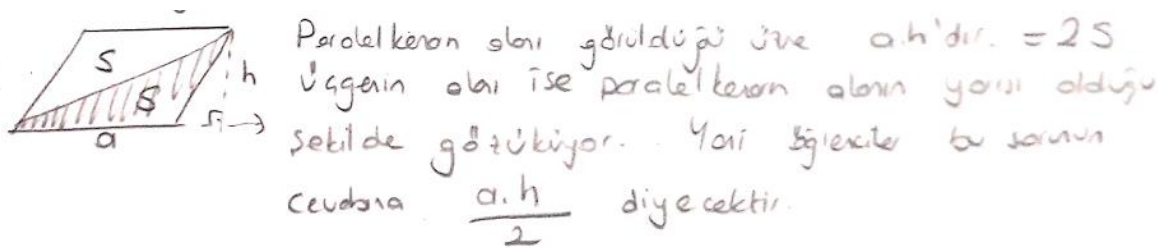 S
S
h
a
Paralelkenarın alanı görüldüğü üzere a.h'dır. = 2S
Üçgenin alanı ise paralelkenarın alanın yarısı olduğu
şekilde gözüküyor. Yani öğrenciler bu sorunun
cevabına a.h / 2 diyecektir.